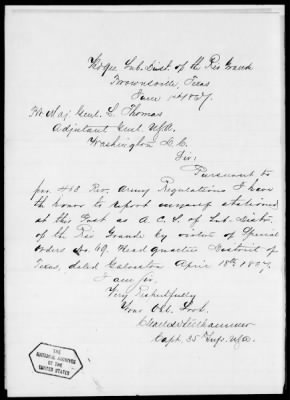 Hdqrs Sub. Dist. of the Rio Grande
Brownsville, Texas
June 1867.
Bt. Maj. Genl. L. Thomas
Adjutant Genl. U.S.A.
Washington D.C.
Sir:
Pursuant to
par. 468 Rev. Army Regulations I have
the honor to report myself stationed
at this Post as A. C. S. of Sub. District
of the Rio Grande by virtue of Special
Orders No. 69. Head Quarters District of
Texas, dated Galveston April 18th 1867.
I am Sir,
Very Respectfully
Your Obt. Servt.
Capt. 35" Inf. U.S.A.
THE
NATIONAL ARCHIVES
OF THE
UNITED STATES